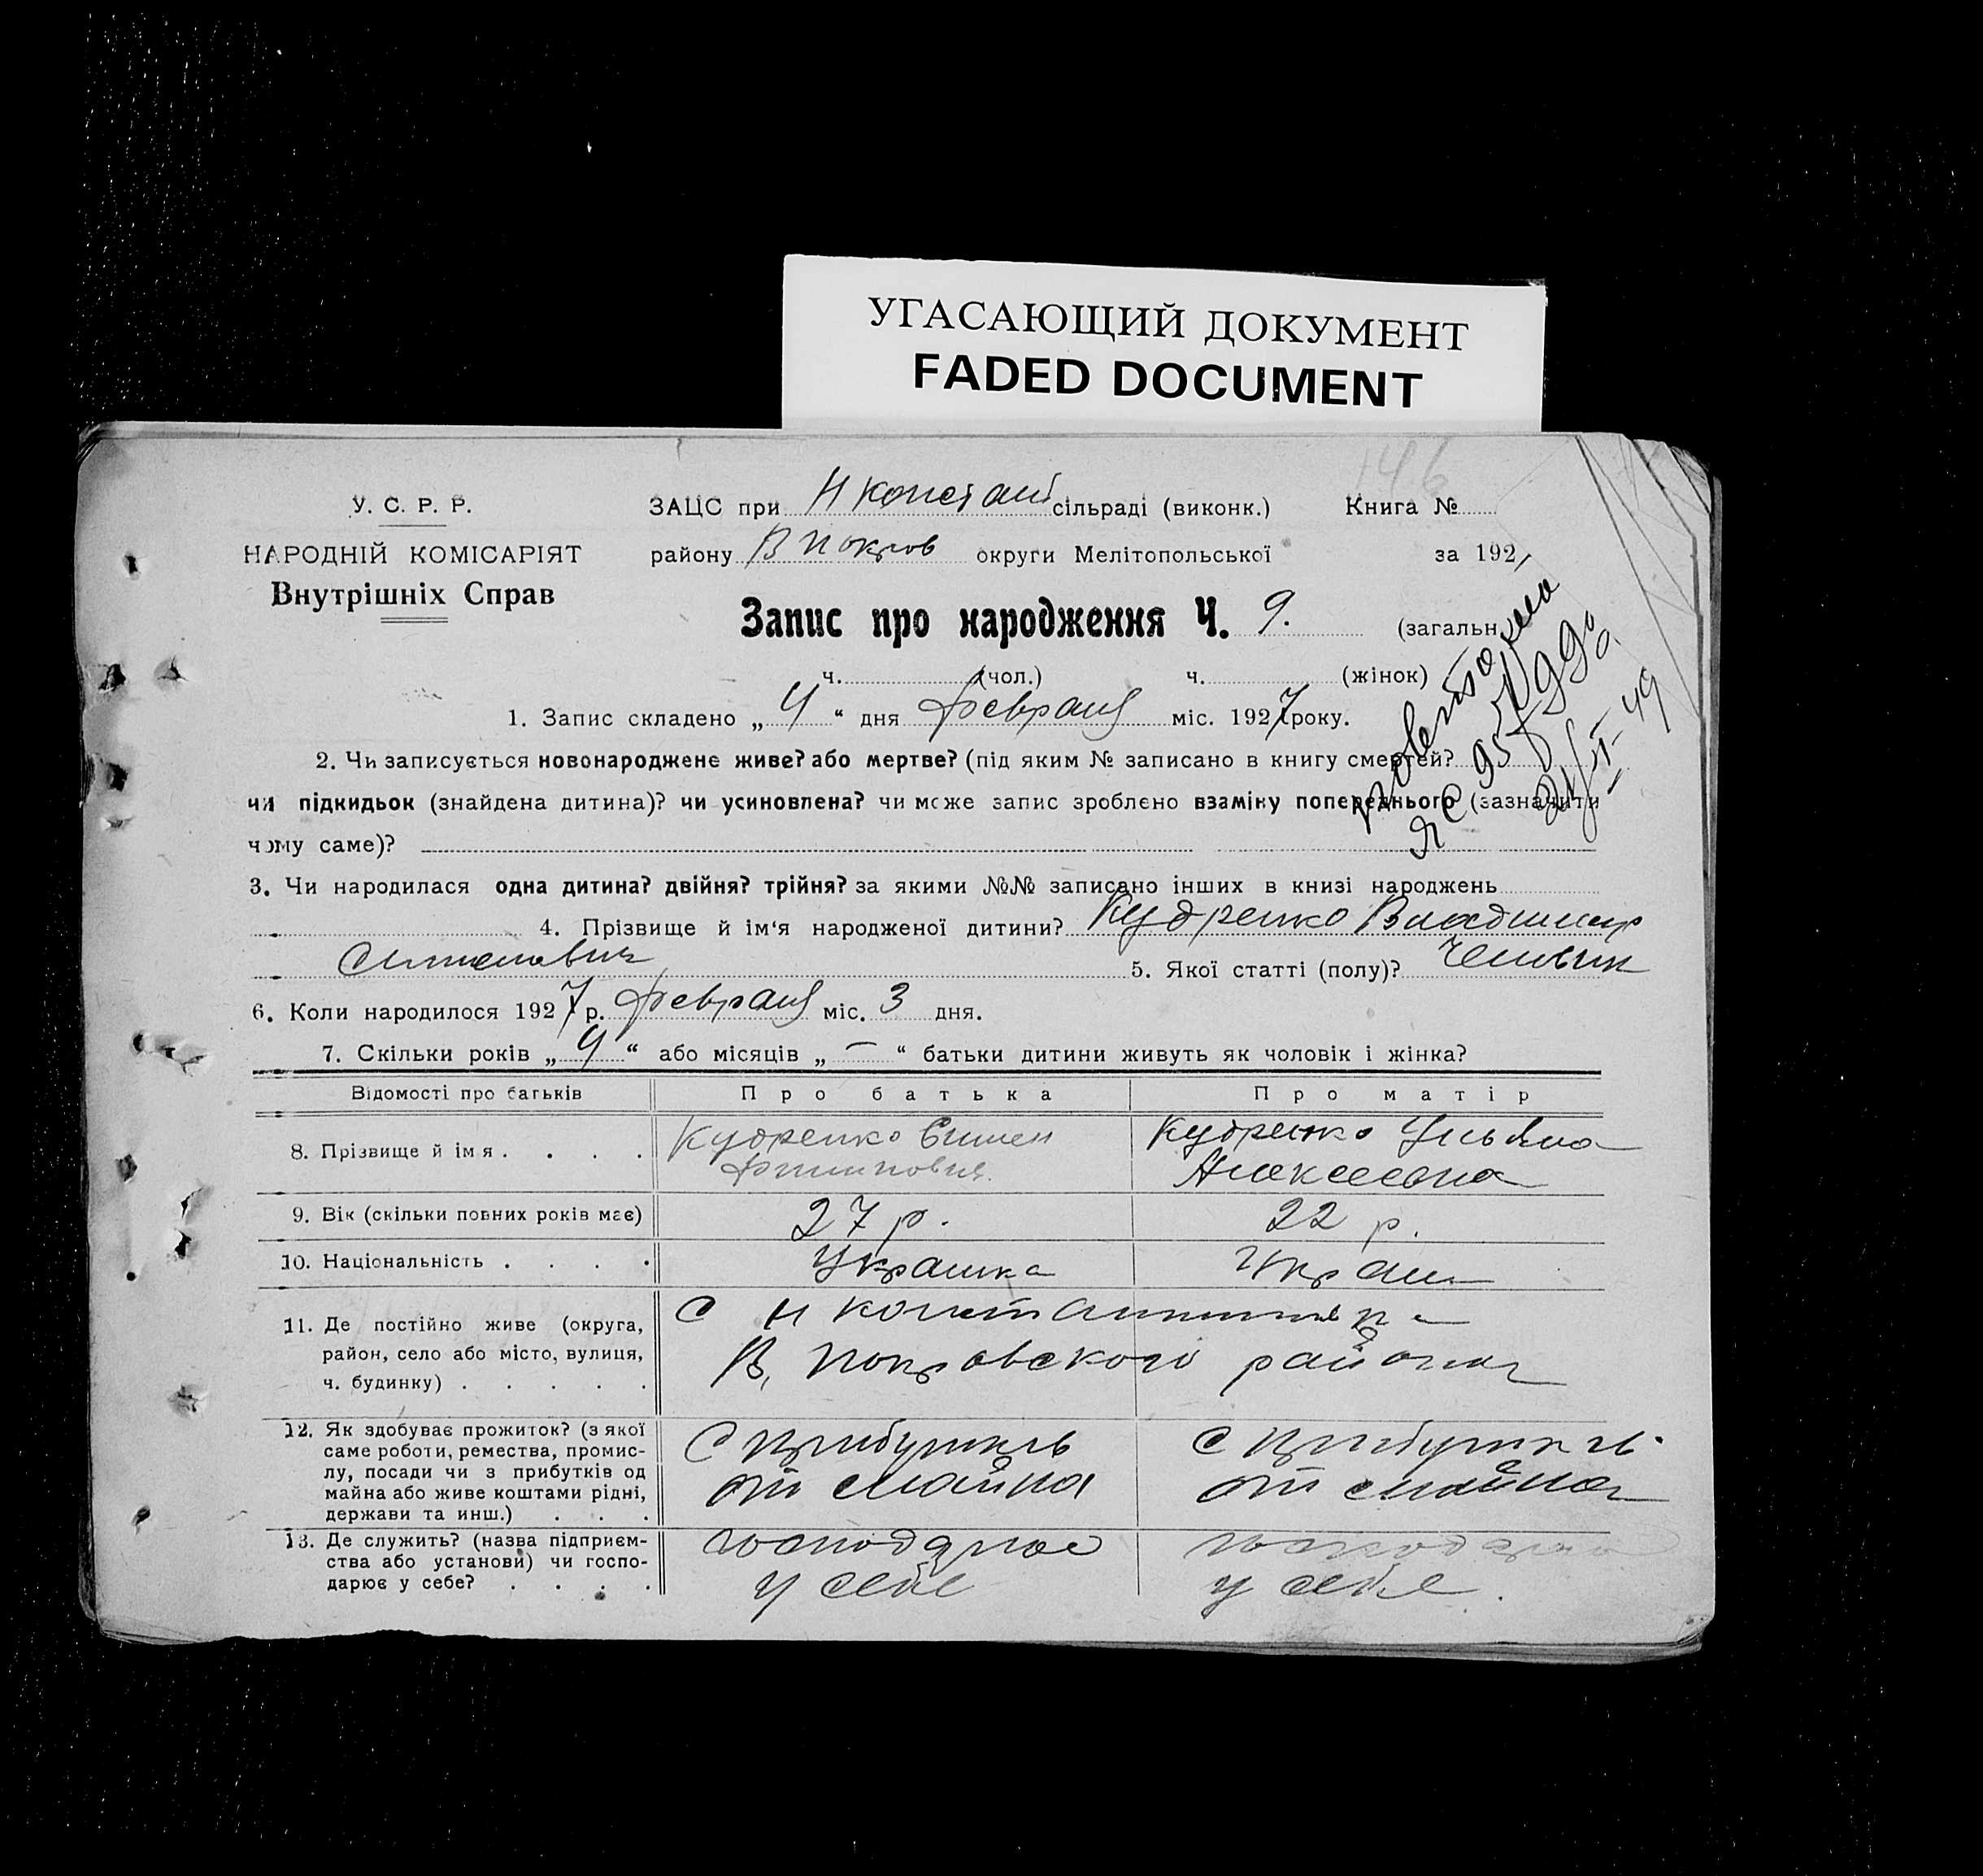 УГАСАЮЩИЙ ДОКУМЕНТ
FADED DOCUMENT
146
У. С. Р. Р.
НАРОДНІЙ КОМІСАРІЯТ
Внутрішніх Справ
ЗАЦС при Н Констант сільраді (виконк.) Книга №
району В Покров округи Мелітопольської за 192
Запис про народження Ч. 9. (загальн.
ч. (чол.) ч. (жінок)
1. Запис складено „ 4 “ дня Февраля міс. 1927 року.
2. Чи записується новонароджене живе? або мертве? (під яким № записано в книгу смертей?
чи підкидьок (знайдена дитина)? чи усиновлена? чи може запис зроблено взаміну попереднього (зазначити
чому саме)?
3. Чи народилася одна дитина? двійня? трійня? за якими №№ записано інших в книзі народжень
4. Прізвище й ім'я народженої дитини? Кудренко Владимир
5. Якої статті (полу)?
6. Коли народилося 1927 р. Февраля міс. 3 дня.
7. Скільки років „ 4 “ або місяців „ — “ батьки дитини живуть як чоловік і жінка?
Відомості про батьків Про батька Про матір
8. Прізвище й імя . . . . Кудренко Кудренко Ульяна
Филипович Алексеевна
9. Вік (скільки повних років має) 27 р. 22 р.
10. Національність . . . . Украинка Украин
11. Де постійно живе (округа, район, село або місто, вулиця, ч. будинку) . . . . .
с Н Константиновка
В. Покровского района
12. Як здобуває прожиток? (з якої саме роботи, ремества, промислу, посади чи з прибутків од майна або живе коштами рідні, держави та инш.) . . .
С прибутків С прибутків
от майна от майна
13. Де служить? (назва підприємства або установи) чи господарює у себе? . . . .
господарює господарює
у себе у себе